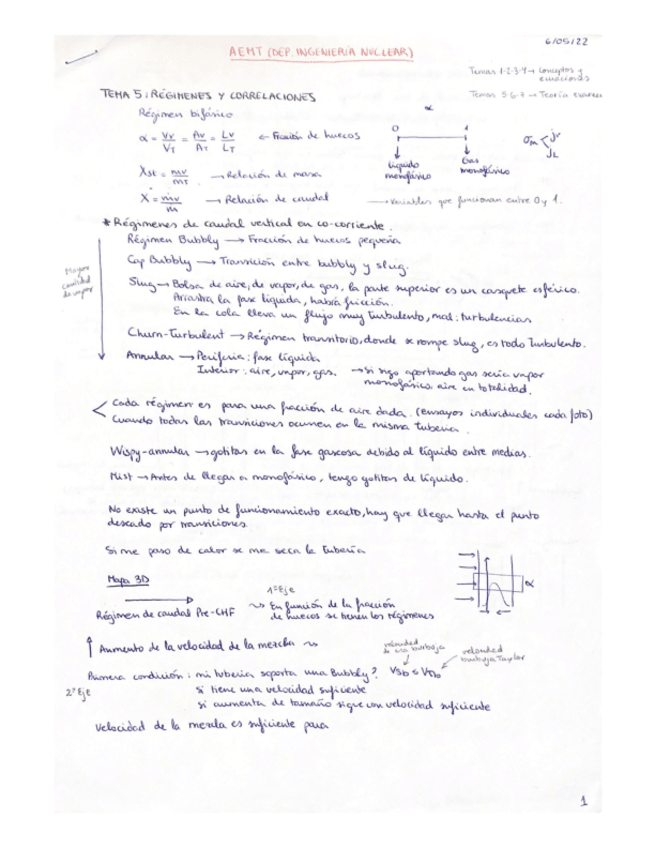 6/05/22
AEMT (DEP. INGENIERÍA NUCLEAR)
Temas 1-2-3-4 → Conceptos y ecuaciones
Temas 5-6-7 → Teoría
TEMA 5: RÉGIMENES Y CORRELACIONES
Régimen bifásico
α = Vv/VT = Av/AT = Lv/LT ← Fracción de huecos
α
0 1
líquido monofásico
Gas monofásico
jv
jL
Xst = mv/mT → Relación de masa
X = ṁv/ṁ → Relación de caudal
→ Variables que funcionan entre 0 y 1.
* Régimenes de caudal vertical en co-corriente.
Régimen Bubbly → Fracción de huecos pequeña
Cap Bubbly → Transición entre bubbly y slug.
Mayor cantidad de vapor
Slug → Bolsa de aire, de vapor, de gas, la parte superior es un casquete esférico.
Arrastra la fase líquida, habrá fricción.
En la cola lleva un flujo muy turbulento, mal: turbulencias
Churn-Turbulent → Régimen transitorio, donde se rompe slug, es todo turbulento.
Annular → Periferia: fase líquida
Interior: aire, vapor, gas.
→ si sigo aportando gas sería vapor monofásico, aire en totalidad.
Cada régimen es para una fracción de aire dada. (ensayos individuales cada foto)
Cuando todas las transiciones ocurren en la misma tubería.
Wispy-annular → gotitas en la fase gaseosa debido al líquido entre medias.
Mist → Antes de llegar a monofásico, tengo gotitas de líquido.
No existe un punto de funcionamiento exacto, hay que llegar hasta el punto
deseado por transiciones.
Si me paso de calor se me seca la tubería
Mapa 3D
α
1º Eje
Régimen de caudal Pre-CHF
En función de la fracción de huecos se tienen los régimenes
↑ Aumento de la velocidad de la mezcla
velocidad de una burbuja
velocidad burbuja Taylor
Primera condición: mi tubería soporta una Bubbly? Vsb ≤ VTb
2º Eje
si tiene una velocidad suficiente
si aumenta de tamaño sigue con velocidad suficiente
Velocidad de la mezcla es suficiente para
1